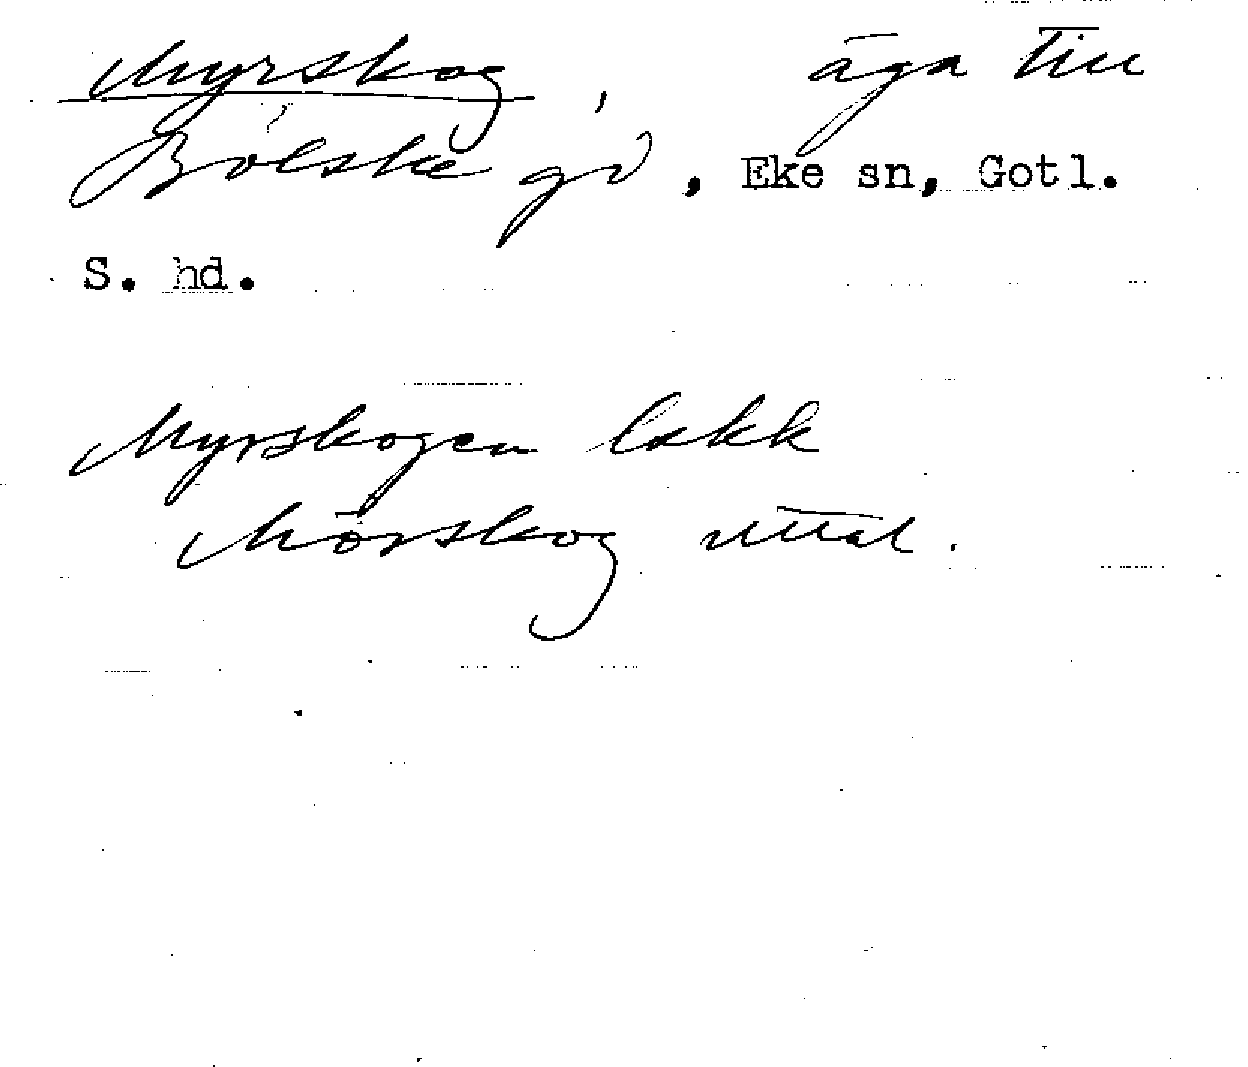 Myrskog, äga till
Bölske gd, Eke sn, Gotl.
S. hd.
Myrskogen lakk
Mörskog uttal.